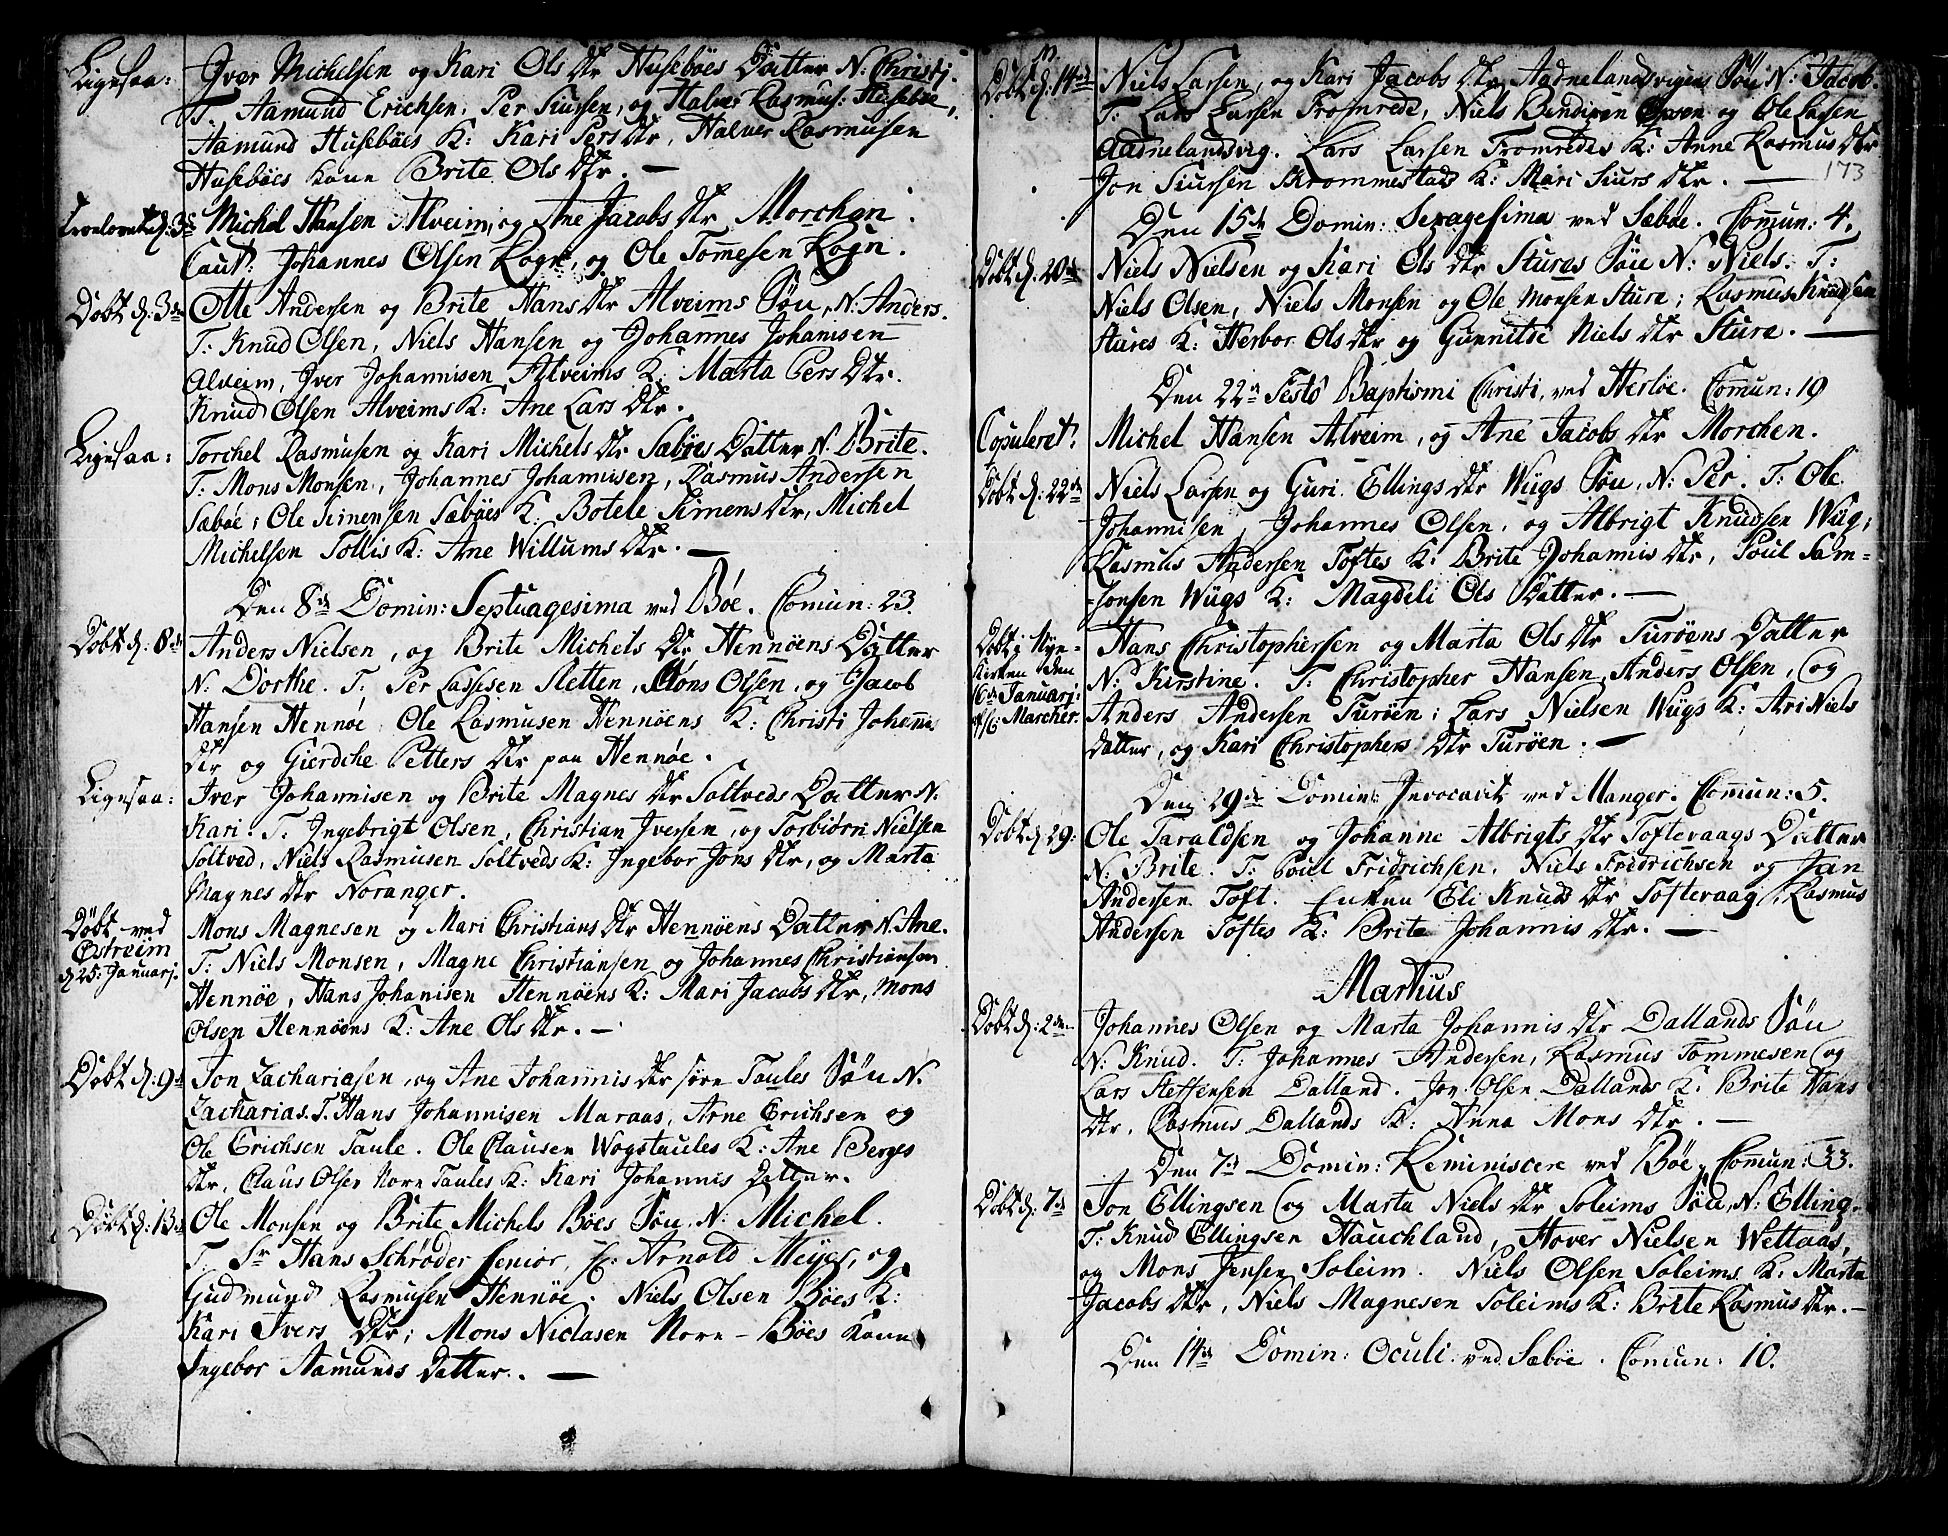 Ligesaa:
Iver Michelsen og Kari Ols Dtr Husebøes Datter N: Christi.
T. Aamund Erichsen, Per Siursen, og Halver Rasmus: Husebøe,
Aamund Husebøes K: Kari Pers Dtr, Halver Rasmusen
Husebøes Kone Brite Ols Dtr. —
Trolovet d: 3de
Michel Hansen Alveim, og Ane Jacobs Dtr Morchen.
Caut: Johannes Olsen Rogn, og Ole Tomesen Rogn.
Døbt d: 3de
Otte Andersen og Brite Hans Dtr Alveims Søn, N: Anders.
T: Knud Olsen, Niels Hansen og Johannes Johannisen
Alveim, Iver Johannisen Alveims K: Marta Pers Dtr.
Knud Olsen Alveims K: Ane Lars Dtr.
Ligesaa:
Torchel Rasmusen og Kari Michels Dtr Sæbøes Datter N: Brite.
T: Mons Monsen, Johannes Johannisen, Rasmus Andersen
Sæbøe; Ole Simensen Sæbøes K: Botele Simens Dtr, Michel
Michelsen Tollis K: Ane Willums Dtr. —
Den 8de Domin: Septuagesima ved Bøe. Comun: 23.
Døbt d: 8de
Anders Nielsen, og Brite Michels Dtr Hennøens Datter
N: Dorthe. T: Per Lassesen Sletten, Mons Olsen, og Jacob
Hansen Hennøe, Ole Rasmusen Hennøens K: Christi Johannis
Dtr og Gierdche Petters Dtr paa Hennøe.
Ligesaa:
Iver Johannisen og Brite Magnes Dtr Soltveds Datter N:
Kari. T: Ingebrigt Olsen, Christian Iversen, og Torbiørn Nielsen
Soltved, Niels Rasmusen Soltveds K: Ingebor Jons Dtr, og Marta
Magnes Dtr Noranger.
Døbt ved
Østreim
d. 25: Januarj.
Mons Magnesen og Mari Christians Dtr Hennøens Datter N: Ane.
T: Niels Monsen, Magne Christiansen og Johannes Christiansen
Hennøe, Hans Johanisen Hennøens K: Mari Jacobs Dtr, Mons
Olsen Hennøens K: Ane Ols Dtr. —
Døbt d: 9de
Jon Zachariasen, og Ane Johannis Dtr søre Taules Søn N.
Zacharias. T. Hans Johannisen Maraas, Arne Erichsen og
Ole Erichsen Taule. Ole Clausen Wogstaules K: Ane Berges
Dtr, Claus Olsen Nore Taules K: Kari Johannis Datter.
Døbt d: 13de
Ole Monsen og Brite Michels Bøes Søn, N: Michel.
T. Sr Hans Schrøder Senior, Arnold Meyer, og
Gudmund Rasmusen Hennøe. Niels Olsen Bøes K:
Kari Ivers Dtr; Mons Niclasen Nore-Bøes Kone
Ingebor Aamunds Datter. —
173
Døbt d: 14de
Niels Larsen, og Kari Jacobs Dtr Aadnelandsvigens Søn N: Jacob.
T: Lars Larsen Fromrede, Niels Bendixen og Ole Larsen
Aadnelandsvig. Lars Larsen Fromredes K: Anne Rasmus Dtr
Jon Siursen Krommestads K: Mari Siurs Dtr. —
Den 15de Domin: Sexagesima ved Sæbøe. Comun: 4.
Døbt d: 20de
Niels Nielsen og Kari Ols Dtr Stures Søn N: Niels. T:
Niels Olsen, Niels Monsen og Ole Monsen Sture; Rasmus Knudsen
Stures K: Herbor Ols Dtr og Gunnilde Niels Dtr Sture. —
Den 22de Festo Baptismi Christi, ved Herløe. Comun: 19
Copuleret.
Michel Hansen Alveim, og Ane Jacobs Dtr Morchen.
Døbt d: 22de
Niels Larsen og Guri Ellings Dtr Wügs Søn, N: Per. T: Ole
Johannisen, Johannes Olsen, og Albrigt Knudsen Wüg,
Rasmus Andersen Toftes K: Brite Johannis Dtr, Poul Sam-
sonsen Wügs K: Magdeli Ols Datter. —
Døbt i Nye-
Kirken den
6de Januarj
Hans Christophersen og Marta Ols Dtr Turøens Datter
N: Kirstine. T: Christopher Hansen, Anders Olsen, og
Anders Andersen Turøen; Lars Nielsen Wügs K: Ari Niels
datter, og Kari Christophers Dtr Turøen. —
Den 29de Domin: Invocavit ved Manger. Comun: 5.
Døbt d. 29:
Ole Taraldsen og Johanne Albrigts Dtr Toftevaags Datter
N: Brite. T: Poul Fridrichsen, Niels Fridrichsen og Jan
Andersen Toft. Enken Eli Knuds Dtr Toftevaag, Rasmus
Andersen Toftes K: Brite Johannis Dtr. —
Martius
Døbt d: 2den
Johannes Olsen og Marta Johannis Dtr Dallands Søn
N: Knud. T: Johannes Andersen, Rasmus Tommesen og
Lars Steffensen Dalland. Jon Olsen Dallands K: Brite Hans
Dtr, Rasmus Dallands K: Anna Mons Dtr. —
Den 7de Domin: Reminiscere ved Bøe, Comun: 33.
Døbt d: 7de
Jon Ellingsen og Marta Niels Dtr Soleims Søn, N: Elling.
T: Knud Ellingsen Hauchland, Hover Nielsen Wettaas,
og Mons Jensen Soleim. Niels Olsen Soleims K: Marta
Jacobs Dtr, Niels Magnesen Soleims K: Brite Rasmus Dtr. —
Den 14de Domin: Oculi ved Sæbøe. Comun: 10.